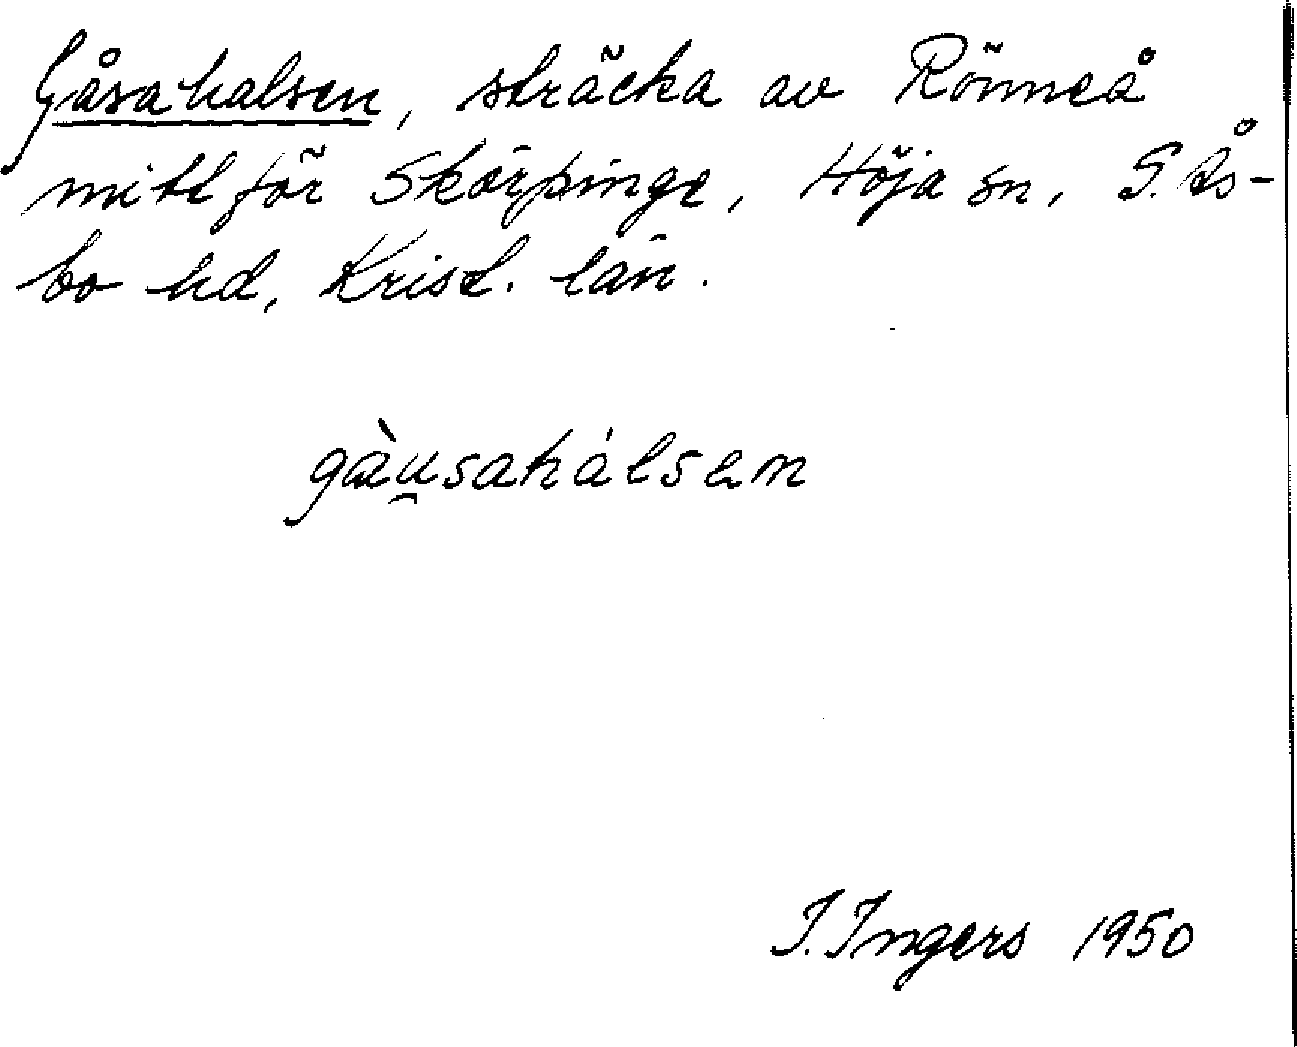 Gåsahalsen, sträcka av Rönneå
mitt för Skörpinge, Höja sn, S. Ås-
bo hd, Krist. län.
gàu̯sahálsen
I. Ingers 1950